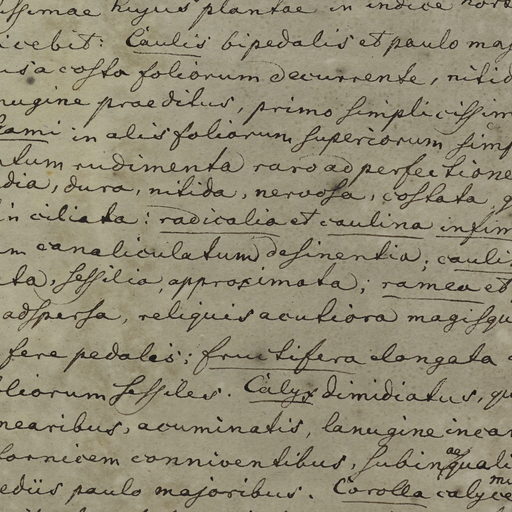 issimae hujus plantae in indice hort
icebit: Caulis bipedalis et paulo maj
usa costa foliorum decurrente, nitid
nugine praeditus, primo simplicissim
Rami in alis foliorum superiorum simp
ntum rudimenta raro ad perfectione
dia, dura, nitida, nervosa, costata, g
in ciliata: radicalia et caulina infim
m canaliculatum desinentia; cauli
ata, sessilia, approximata; ramea et
adspersa, reliquis acutiora magisqu
fere pedalis; fructifera elongata
oliorum sessiles. Calyx dimidiatus, qu
nearibus, acuminatis, lanugine incan
fornicem conniventibus, subinaequali
ediis paulo majoribus. Corolla calyce